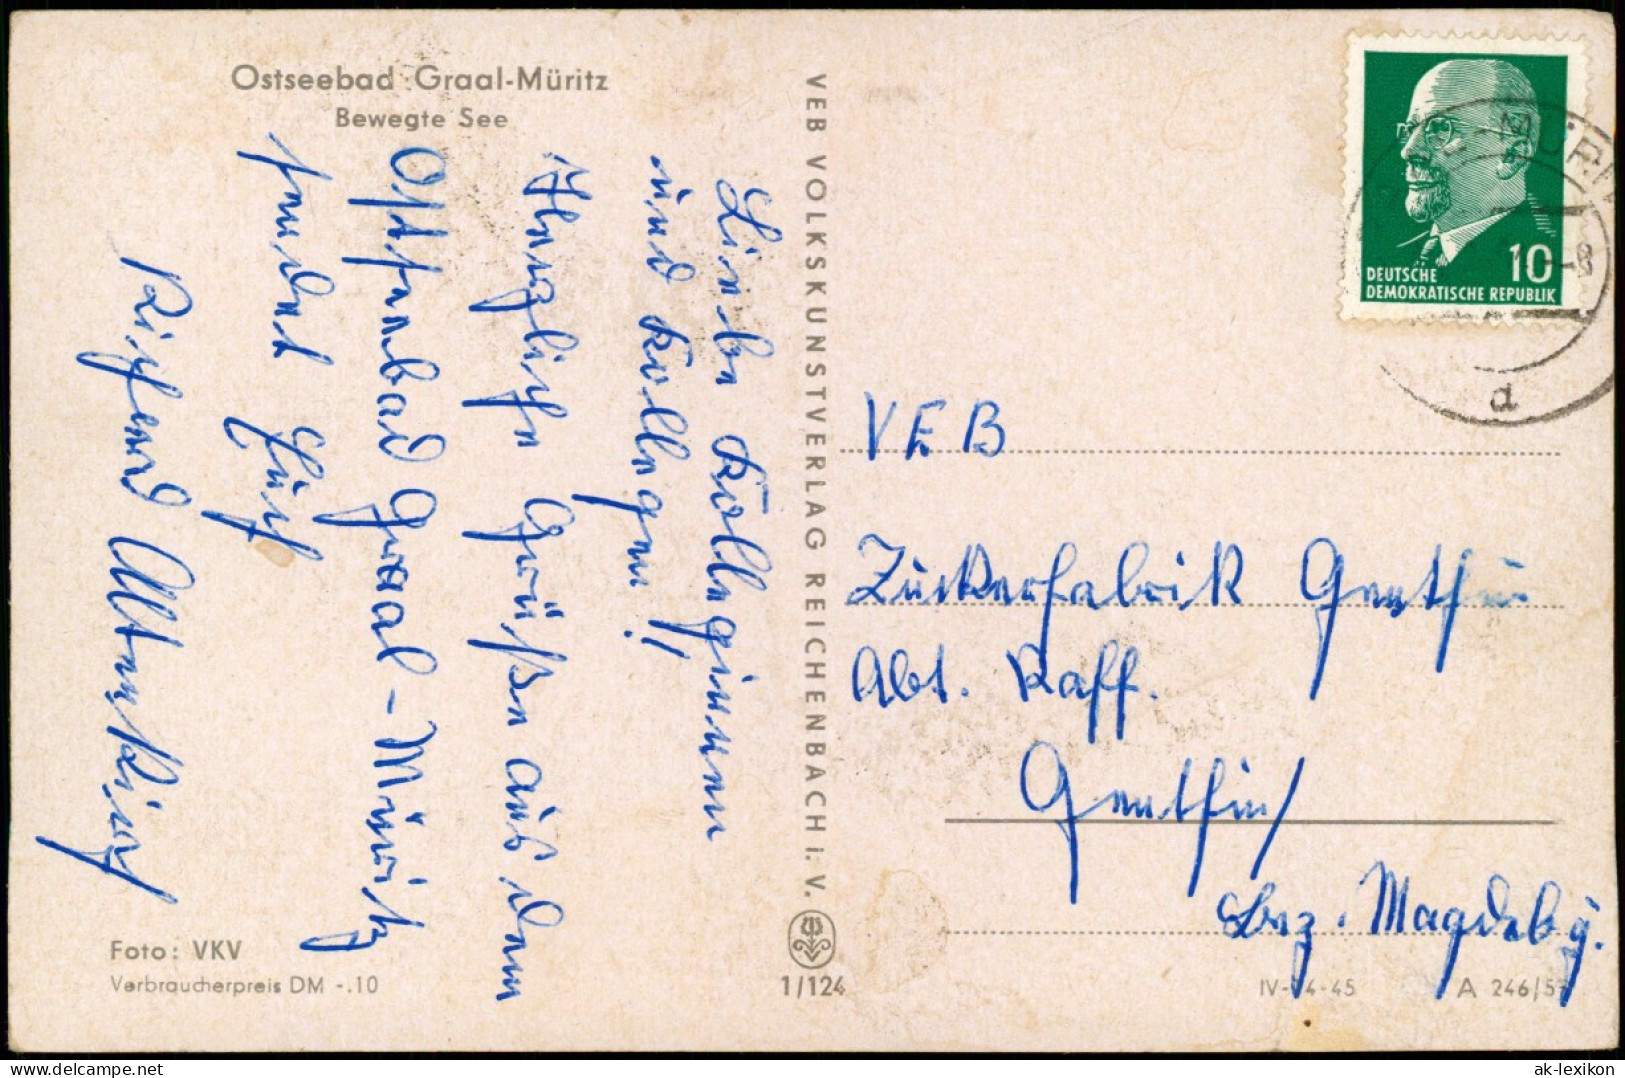 Ostseebad Graal-Müritz
Bewegte See
Liebe Kolleginnen
und Kollegen!
Herzliche Grüße aus dem
Ostseebad Graal-Müritz
sendet Euch
Richard
Foto: VKV
Verbraucherpreis DM -.10
VEB VOLKSKUNSTVERLAG REICHENBACH i. V.
1/124
10
DEUTSCHE
DEMOKRATISCHE REPUBLIK
d
VEB
Zuckerfabrik Genthin
Abt. Raff.
Genthin/
Bez. Magdebg.
A 246/57
delcampe.net
ak-lexikon